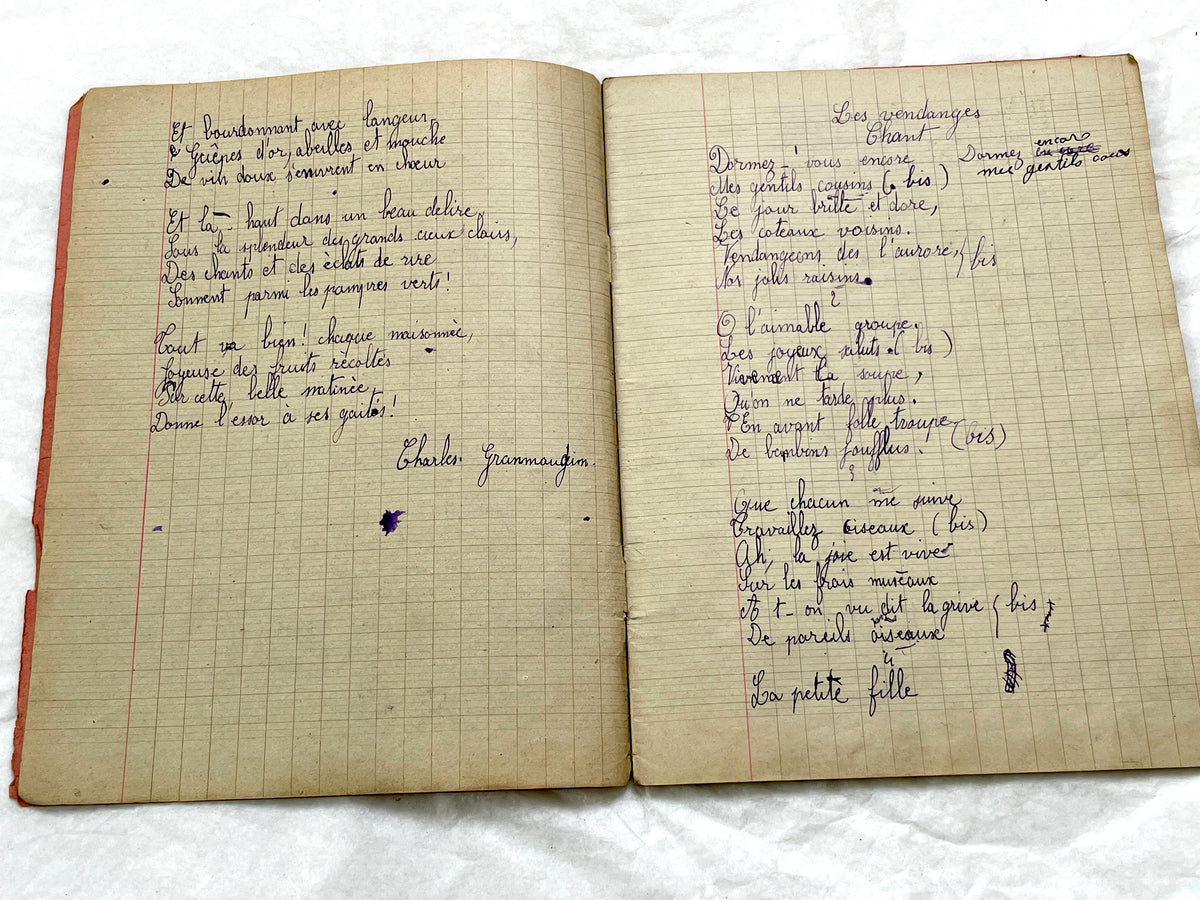 Et bourdonnant avec langeur,
Guêpes d'or, abeilles et mouche
De vin doux s'enivrent en chœur
Et là-haut dans un beau delire,
Sous la splendeur des grands cieux clairs,
Des chants et des éclats de rire
Sonnent parmi les pampres verts!
Tout va bien! chaque maisonnée,
Joyeuse des fruits récoltés
Sur cette belle matinée,
Donne l'essor à ses gaités!
Charles. Granmougim.
Les vendanges
Chant
Dormez-vous encore
Mes gentils cousins (bis)
Le jour brille et dore,
Les coteaux voisins.
Vendangeons des l'aurore, } bis
Nos jolis raisins.
2
O l'aimable groupe.
Les joyeux saluts. (bis)
Vivement la soupe,
Qu'on ne tarde plus.
En avant folle troupe (bis)
De bambins joufflus.
3
Que chacun me suive
Travaillez ciseaux (bis)
Ah, la joie est vive
Sur les frais museaux
A t-on vu dit la grive { bis
De pareils oiseaux
4
La petite fille
Dormez encore
mes gentils cous